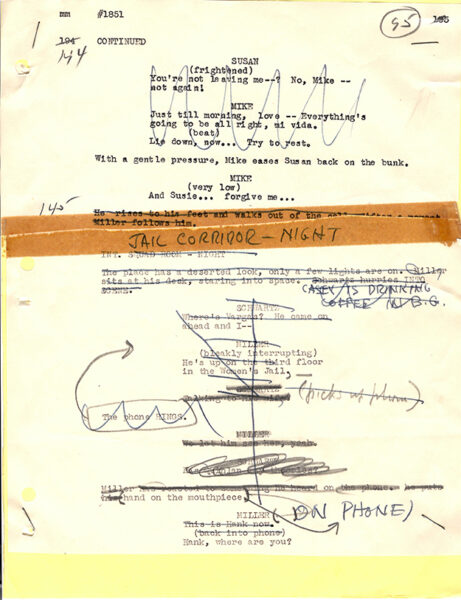 mm #1851 95
194 CONTINUED
144
SUSAN
(frightened)
You're not leaving me--? No, Mike --
not again!
MIKE
Just till morning, love -- Everything's
going to be all right, mi vida.
(beat)
Lie down, now... Try to rest.
With a gentle pressure, Mike eases Susan back on the bunk.
MIKE
(very low)
And Susie... forgive me...
145
He rises to his feet and walks out of the cell.
Miller follows him.
JAIL CORRIDOR - NIGHT
INT. SQUAD ROOM - NIGHT
The place has a deserted look, only a few lights are on. Miller
sits at his desk, staring into space. Schwartz hurries INTO
SCENE.
CASEY IS DRINKING
COFFEE IN B.G.
SCHWARTZ
Where's Vargas? He came on
ahead and I--
MILLER
(bleakly interrupting)
He's up on the third floor
in the Women's Jail,
SCHWARTZ
Talking to his wife
(picks up phone)
The phone RINGS.
MILLER
We let him see her, yeah.
Miller he heard on the phone. He puts
his hand on the mouthpiece.
MILLER (ON PHONE)
This is Hank now.
(back into phone)
Hank, where are you?